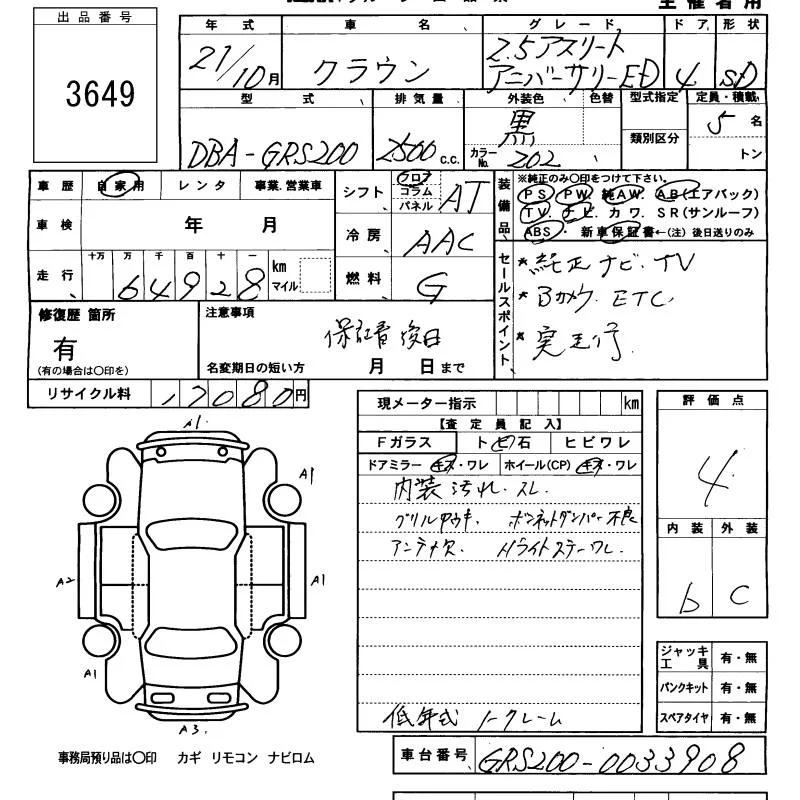 主催者用
出品番号
3649
年式 車名 グレード ドア 形状
21/10月 クラウン 2.5アスリート アニバーサリーED 4 SD
型式 排気量 外装色 色替 型式指定 定員・積載
DBA-GRS200 2500 c.c. 黒 カラーNo. 202 類別区分 5名
トン
車歴 自家用 レンタ 事業.営業車
車検 年 月
走行 十万 万 千 百 十 一 km マイル
64928
シフト フロア コラム パネル AT
冷房 AAC
燃料 G
装備品 ※純正のみ○印をつけて下さい。
PS PW 純AW. AB(エアバック)
TV. ナビ. カワ. SR(サンルーフ)
ABS・ 新車保証書←(注) 後日送りのみ
セールスポイント
* 純正ナビ. TV
* Bカメラ. ETC
* 実走行.
修復歴 箇所
有
(有の場合は○印を)
注意事項
保証書 後日
名変期日の短い方 月 日まで
リサイクル料 17080円
現メーター指示 km
【査定員記入】
Fガラス トビ石 ヒビワレ
ドアミラー キズ・ワレ ホイール(CP) キズ・ワレ
内装 汚れ. スレ.
グリルウキ. ボンネットダンパー不良
アンテナ欠 Hライトステーワレ.
低年式 ノークレーム
評価点
4
内装 外装
b C
ジャッキ工具 有・無
パンクキット 有・無
スペアタイヤ 有・無
A1
A1
A2
A1
A1
A3
事務局預り品は○印 カギ リモコン ナビロム
車台番号 GRS200-0033908